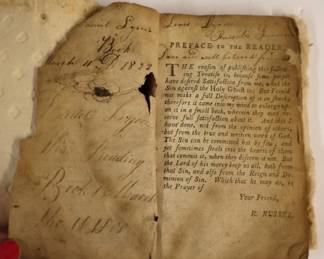 Daniel Lyons
Book
March 11 D 1822
Reading
Book
Louis Lyons
PREFACE TO THE READER.
THE reason of publishing this following
Treatise is, because some people
have desired Satisfaction from me, what the
Sin against the Holy Ghost is: But I could
not make a full Description of it in short;
therefore it came into my mind to enlarge upon
it in a small book, wherein they may receive
full satisfaction about it: And this I
have done, not from the opinion of others,
but from the true and written word of God.
The Sin can be committed but by few, and
yet sometimes steals into the hearts of them
that commit it, when they discern it not. But
the Lord of his mercy keep us all, both from
that Sin, and also from the Reign and Dominion
of Sin. Which that he may do, is
the Prayer of
Your Friend,
R. RUSSEL.